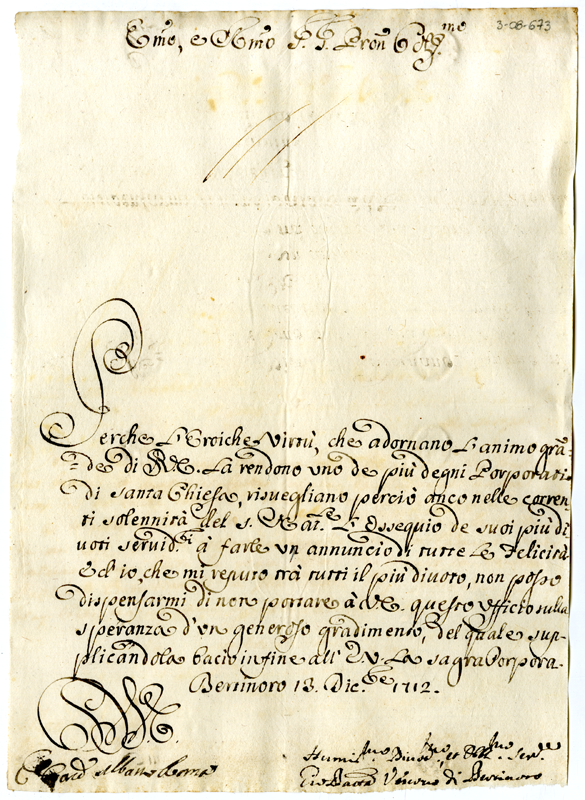 3-08-673
Em͞o, e R͞mo S. S. Pron͞ Col͞mo
Perche l'Eroiche Virtù, che adornano l'animo grã-
-de di V.E. la rendono uno de più degni Porporati
di santa Chiesa, risvegliano perciò anco nelle corren-
ti solennità del s. Nat.e l'ossequio de suoi più di
uoti seruid.ri à farle un annuncio di tutte le felicità
Ed io, che mi reputo trà tutti il più diuoto, non posso
dispensarmi di non portare à V.E. questo ufficio sulla
speranza d'un generoso gradimento, del quale sup-
plicandola bacio in fine all' E.V. la sagra Porpora.
Bertinoro 13. Dic.bre 1712.
D.V.E.
Card. Albano Roma
Humil.mo Diuot.mo et Obbl.mo Ser.re
Gio Batta Vescouo di Bertinoro